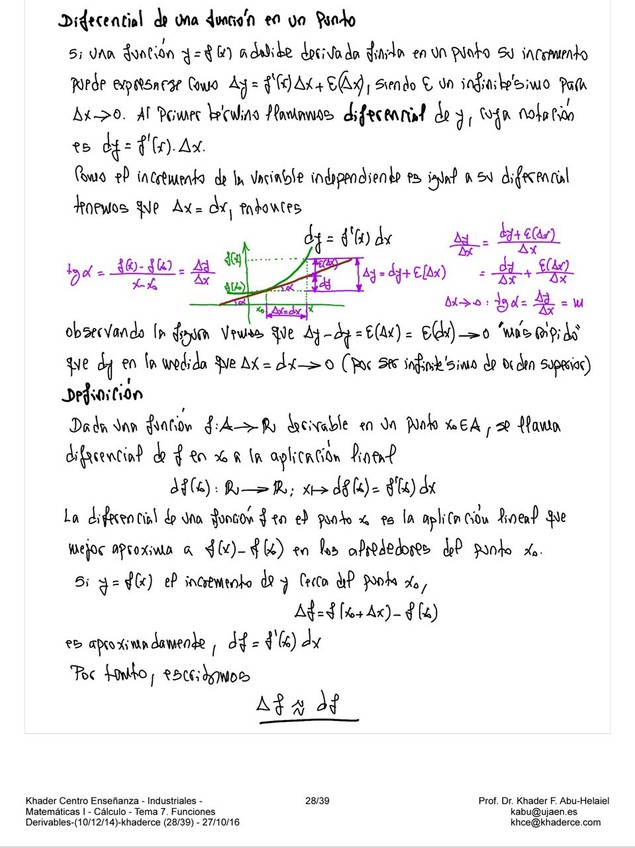 Diferencial de una función en un punto
Si una función y=f(x) admite derivada finita en un punto su incremento
puede expresarse como Δy = f'(x)Δx + ε(Δx), siendo ε un infinitésimo para
Δx→0. Al primer término llamamos diferencial de y, cuya notación
es dy = f'(x).Δx.
Como el incremento de la variable independiente es igual a su diferencial
tenemos que Δx = dx, entonces
dy = f'(x) dx
tgα = f(x)-f(x₀)/x-x₀ = Δy/Δx
f(x)
f(x₀)
α
α
ε(Δx)
dy
x₀
Δx=dx
x
Δy = dy + ε(Δx)
Δy/Δx = dy + ε(Δx)/Δx
= dy/Δx + ε(Δx)/Δx
Δx→0 : tgα = Δy/Δx = m
observando la figura vemos que Δy-dy = ε(Δx) = ε(dx) → 0 "más rápido"
que dy en la medida que Δx = dx → 0 (por ser infinitésimo de orden superior)
Definición
Dada una función f: A → ℝ derivable en un punto x₀∈A, se llama
diferencial de f en x₀ a la aplicación lineal
df(x₀): ℝ → ℝ; x↦ df(x₀) = f'(x₀) dx
La diferencial de una función f en el punto x₀ es la aplicación lineal que
mejor aproxima a f(x)-f(x₀) en los alrededores del punto x₀.
Si y = f(x) el incremento de y cerca del punto x₀,
Δf = f(x₀+Δx)-f(x₀)
es aproximadamente, df = f'(x₀) dx
Por tanto, escribimos
Δf ≈ df
Khader Centro Enseñanza - Industriales -
Matemáticas I - Cálculo - Tema 7. Funciones
Derivables-(10/12/14)-khaderce (28/39) - 27/10/16
28/39
Prof. Dr. Khader F. Abu-Helaiel
kabu@ujaen.es
khce@khaderce.com